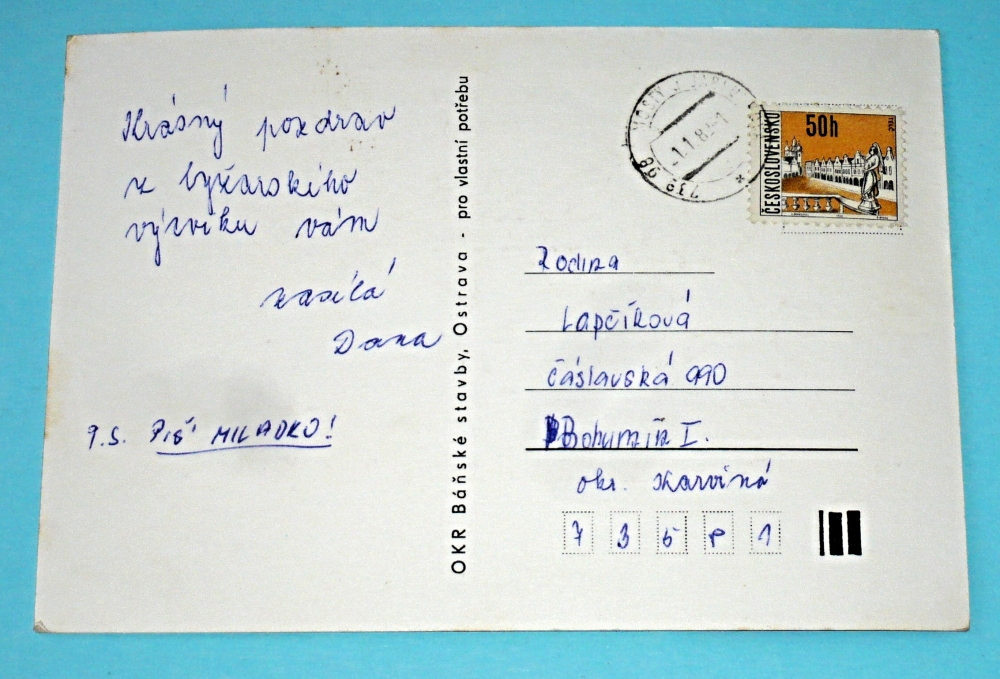 Krásný pozdrav
z lyžarského
výcviku vám
zasílá
Dana
P.S. Piš MILADKO!
OKR Báňské stavby, Ostrava - pro vlastní potřebu
739 98 MOSTY U JABLUNK
-1.1.82-1
ČESKOSLOVENSKO
50h
Rodina
Lapčíková
Čáslavská 990
Bohumín I.
okr. Karviná
7 3 5 8 1